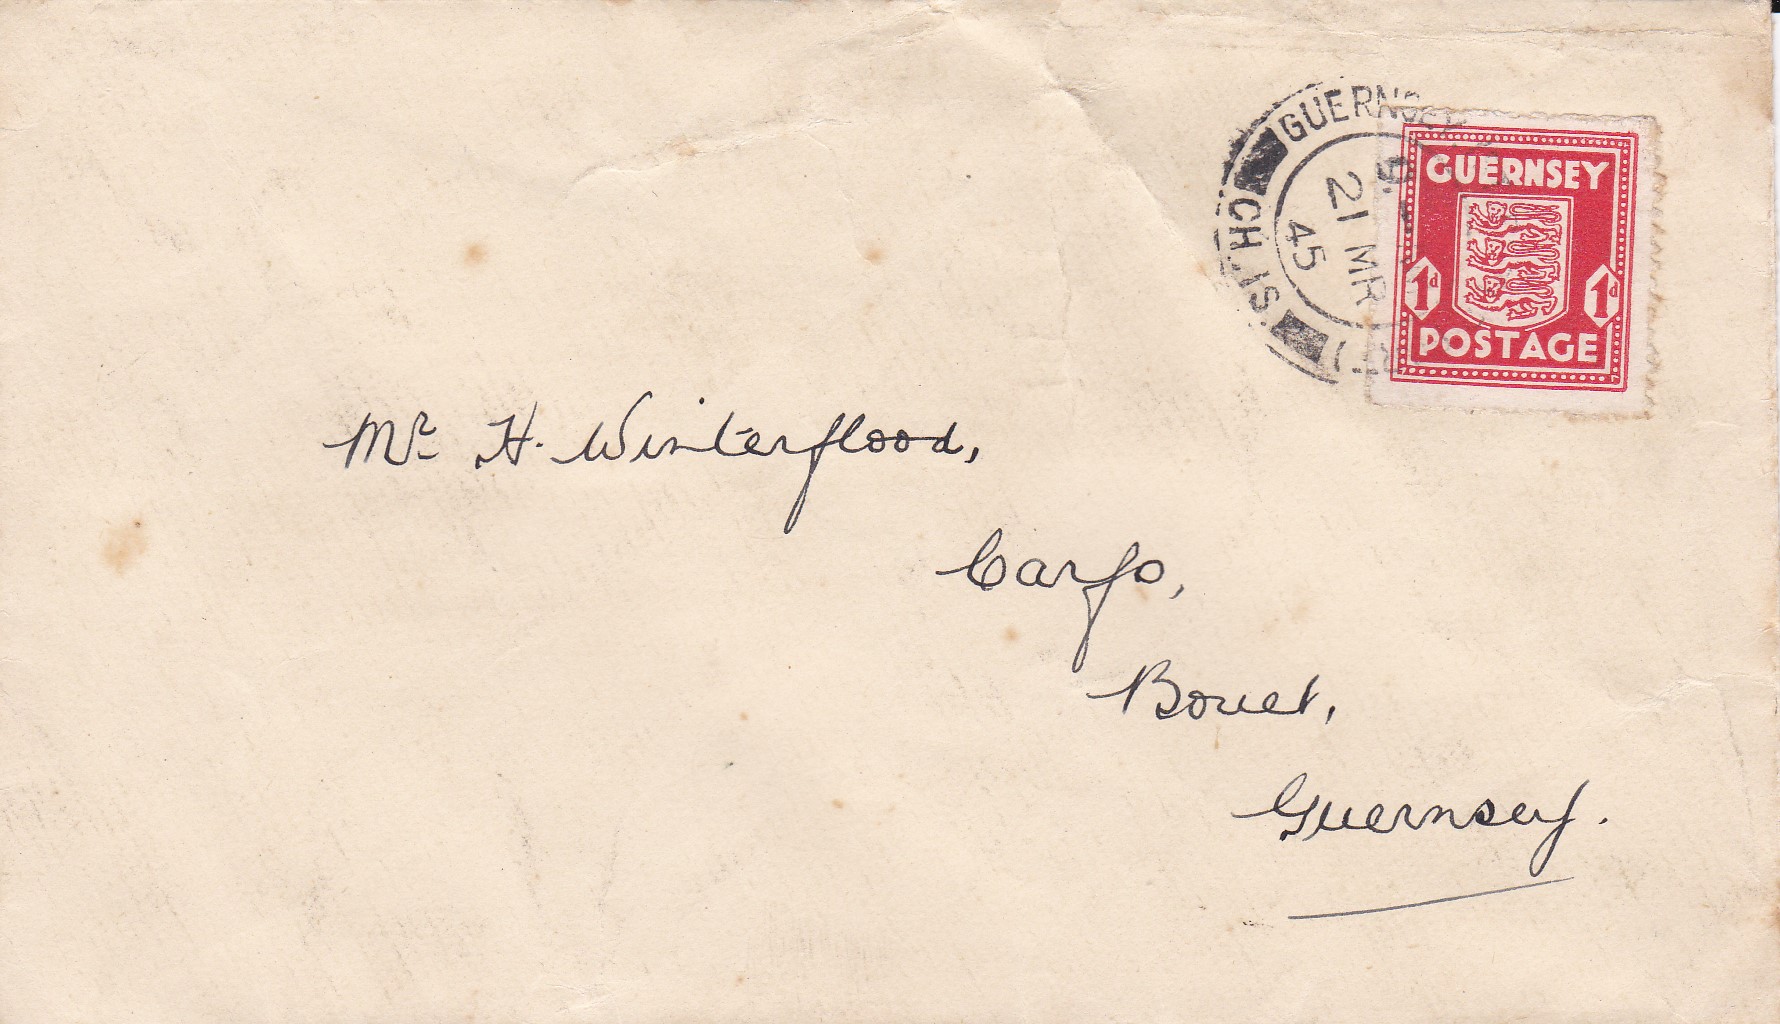 GUERNSEY
CH. IS.
21 MR
45
GUERNSEY
1d 1d
POSTAGE
Mr H. Winterflood,
Carfo,
Bouet,
Guernsey.